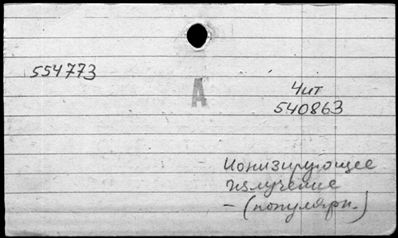 554773
А
Чит
540863
Ионизирующее
излучение
– (популярн.)